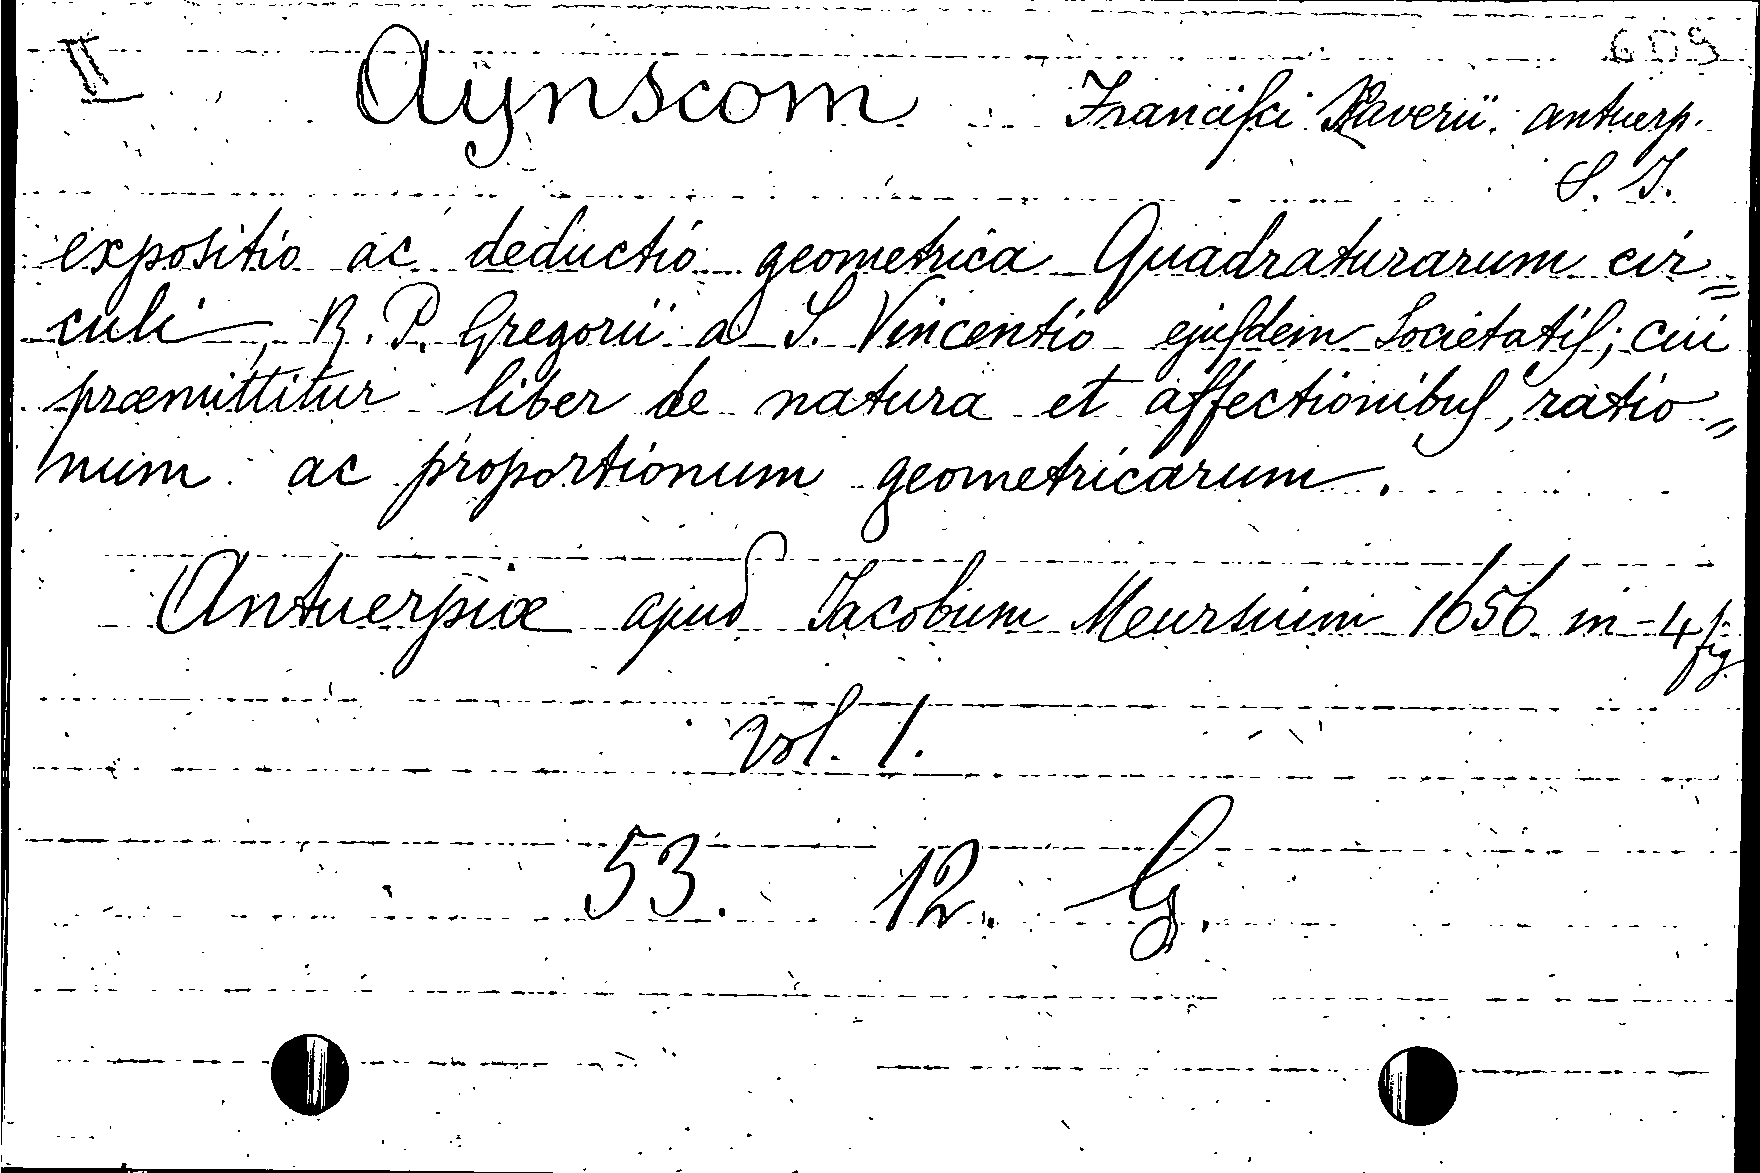 II Aynscom Francisci Xaverii. antuerp. 609
S. J.
expositio ac deductio geometrica Quadraturarum cir=
culi, R. P. Gregorii a S. Vincentio ejusdem Societatis; cui
præmittitur liber de natura et affectionibus, ratio=
num ac proportionum geometricarum.
Antuerpiæ apud Jacobum Meursium 1656 in-4 fig.
vol. 1.
53. 12. G.